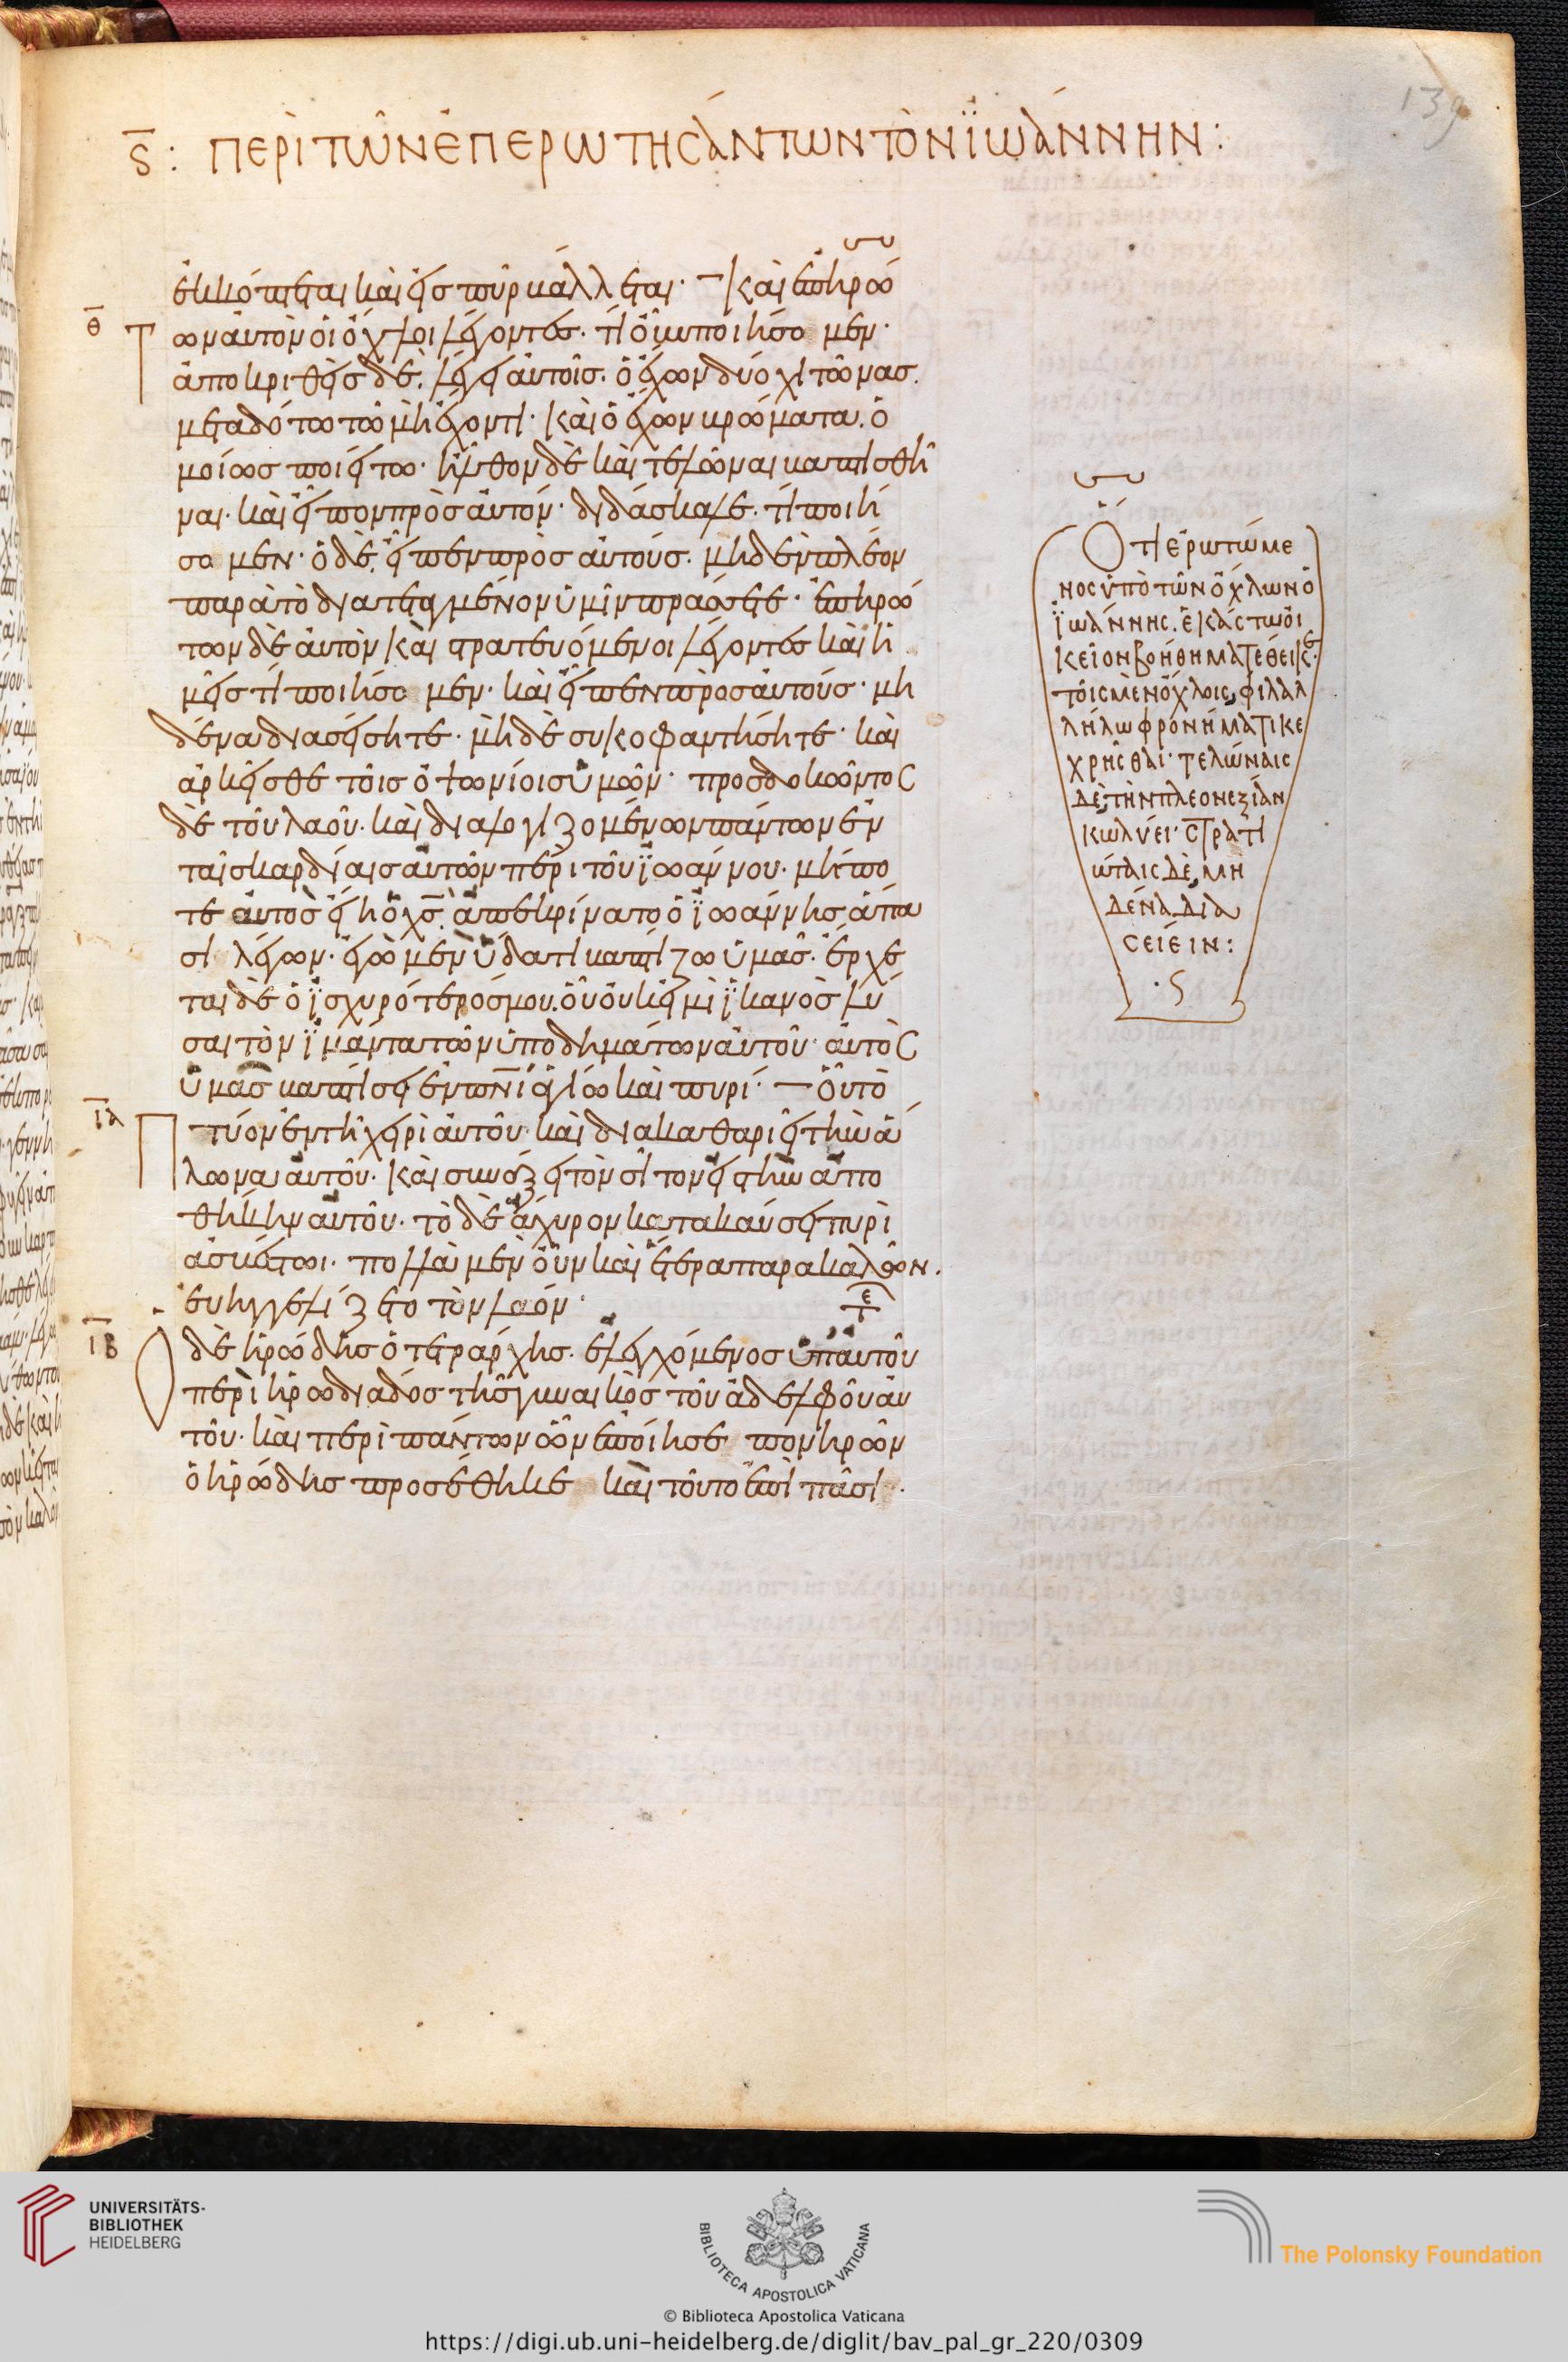 139
ς: περὶ τῶν ἐπερωτησάντων τὸν ϊωάννην:
ἐκκόπτεται καὶ εἰς πῦρ βάλλεται· Καὶ ἐπηρώ
θ
ων αὐτὸν οἱ ὄχλοι λέγοντες· τί οὖν ποιήσομεν·
ἀποκριθεὶς δὲ, λέγει αὐτοῖς· ὁ ἔχων δύο χιτῶνας.
μεταδότω τῶ μὴ ἔχοντι· καὶ ὁ ἔχων βρώματα. ὁ
μοίως ποιείτω· ἦλθον δὲ καὶ τελῶναι βαπτισθῆ
ναι· καὶ εἶπον πρὸς αὐτόν· διδάσκαλε. τί ποιή
σομεν· ὁ δὲ, εἶπεν πρὸς αὐτούς· μηδὲν πλέον
παρὰ τὸ διατεταγμένον ὑμῖν πράσσετε· ἐπηρώ
των δὲ αὐτὸν καὶ στρατευόμενοι λέγοντες καὶ ἡ
μεῖς τί ποιήσομεν· καὶ εἶπεν πρὸς αὐτούς· μη
δένα διασείσητε· μὴ δὲ συκοφαντήσητε· καὶ
ἀρκεῖσθε τοῖς ὀψωνίοις ὑμῶν· προσδοκῶντος
δὲ τοῦ λαοῦ· καὶ διαλογιζομένων πάντων ἐν
ταῖς καρδίαις αὐτῶν περὶ τοῦ ϊωάννου· μήπο
τε αὐτὸς εἴη ὁ χς. ἀπεκρίνατο ὁ ϊωάννης ἅπα
σι λέγων· ἐγὼ μὲν ὕδατι βαπτίζω ὑμᾶς· ἔρχε
ται δὲ ὁ ϊσχυρότερός μου. οὗ οὐκ εἰμὶ ϊκανὸς λῦ
σαι τὸν ϊμάντα τῶν ὑποδημάτων αὐτοῦ· αὐτὸς
ὑμᾶς βαπτίσει ἐν πνὶ ἁγίω καὶ πυρί· Οὗ τὸ
ια
πτύον ἐν τῆ χειρὶ αὐτοῦ· καὶ διακαθαριεῖ τὴν ἅ
λωνα αὐτοῦ· καὶ συνάξει τὸν σῖτον εἰς τὴν ἀπο
θήκην αὐτοῦ· τὸ δὲ ἄχυρον κατακαύσει πυρὶ
ἀσβέστωι· πολλὰ μὲν οὖν καὶ ἕτερα παρακαλῶν.
εὐηγγελίζετο τὸν λαόν·
ιβ
Ὁ δὲ ἡρώδης ὁ τετραρχης. ἐλεγχόμενος ὑπ αὐτοῦ
περὶ ἡρωδιάδος τῆς γυναικὸς τοῦ ἀδελφοῦ αὐ
τοῦ· καὶ περὶ πάντων ὧν ἐποίησε πονηρῶν
ὁ ἡρώδης προσέθηκε καὶ τοῦτο ἐπὶ πᾶσι·
Ὅτι ἐρωτώμε
νος ὑπὸ τῶν ὄχλων ὁ
ϊωάννης. ἑκάστω οἰ
κεῖον βοήθημα τέθεικε·
τοῖς μὲν ὄχλοις, φιλαλ
λήλω φρονήματι κε
χρῆσθαι· τελώναις
δὲ, τὴν πλεονεξίαν
κωλύει· στρατι
ώταις δὲ, μη
δένα δια
σείειν:
·ς
UNIVERSITÄTS-
BIBLIOTHEK
HEIDELBERG
BIBLIOTECA APOSTOLICA VATICANA
The Polonsky Foundation
© Biblioteca Apostolica Vaticana
https://digi.ub.uni-heidelberg.de/diglit/bav_pal_gr_220/0309